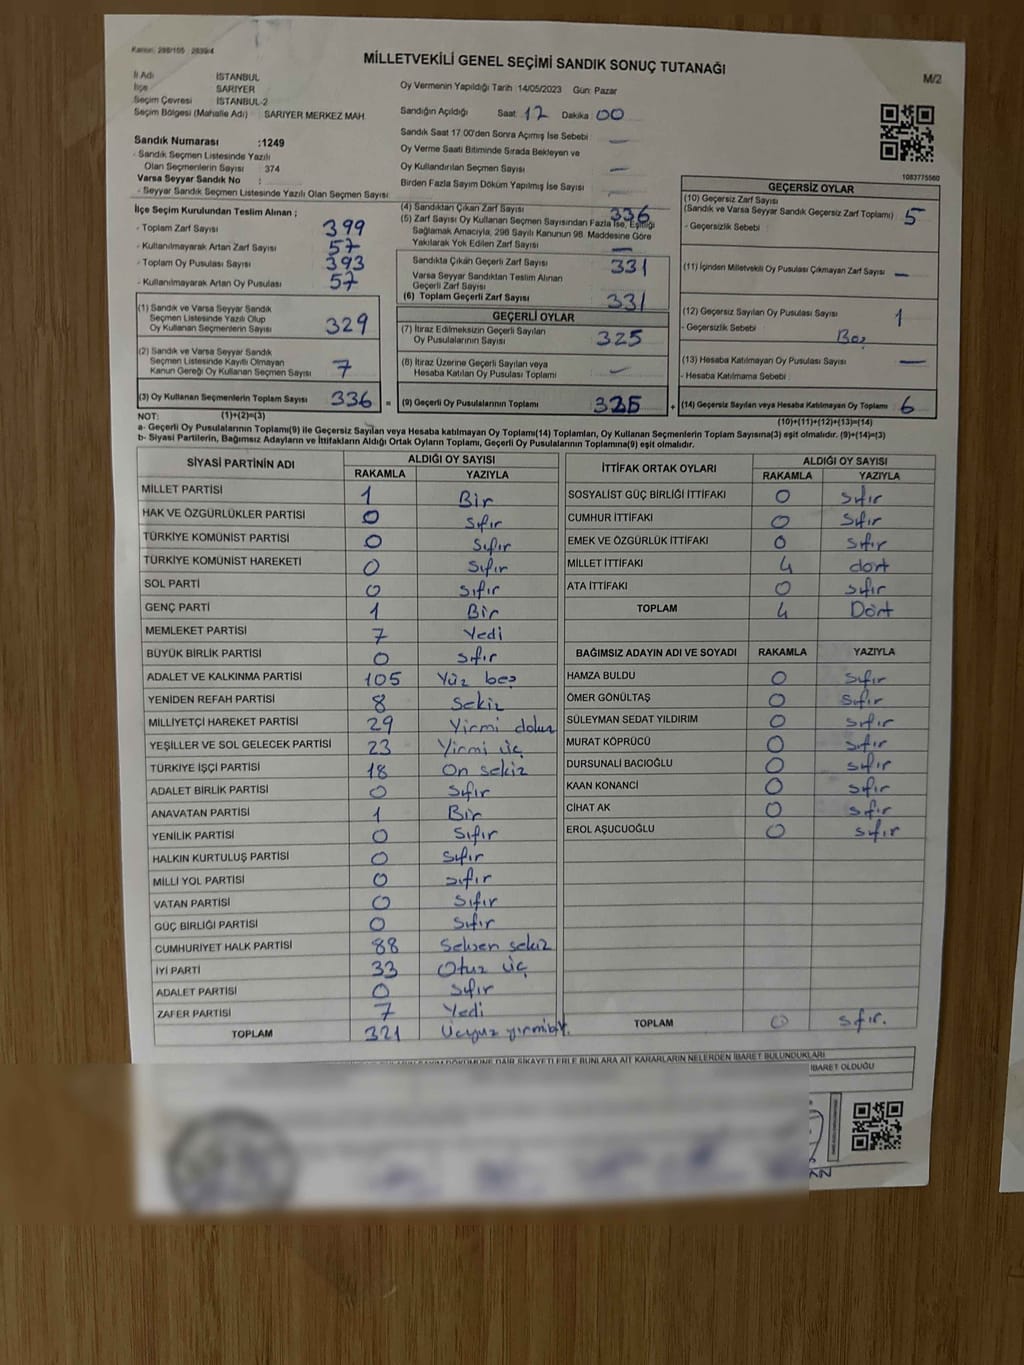 Kanun: 298/105 2839/4
MİLLETVEKİLİ GENEL SEÇİMİ SANDIK SONUÇ TUTANAĞI
M/2
İl Adı İSTANBUL
İlçe SARIYER
Seçim Çevresi İSTANBUL-2
Seçim Bölgesi (Mahalle Adı) SARIYER MERKEZ MAH.
Oy Vermenin Yapıldığı Tarih 14/05/2023 Gün: Pazar
Sandığın Açıldığı Saat 17 Dakika 00
Sandık Saat 17.00'den Sonra Açımış İse Sebebi —
Oy Verme Saati Bitiminde Sırada Bekleyen ve
Oy Kullandırılan Seçmen Sayısı —
Birden Fazla Sayım Döküm Yapılmış İse Sayısı —
1083775560
Sandık Numarası :1249
- Sandık Seçmen Listesinde Yazılı
Olan Seçmenlerin Sayısı : 374
Varsa Seyyar Sandık No :
- Seyyar Sandık Seçmen Listesinde Yazılı Olan Seçmen Sayısı:
İlçe Seçim Kurulundan Teslim Alınan ;
- Toplam Zarf Sayısı 399
- Kullanılmayarak Artan Zarf Sayısı 57
- Toplam Oy Pusulası Sayısı 393
- Kullanılmayarak Artan Oy Pusulası 57
(1) Sandık ve Varsa Seyyar Sandık
Seçmen Listesinde Yazılı Olup
Oy Kullanan Seçmenlerin Sayısı 329
(2) Sandık ve Varsa Seyyar Sandık
Seçmen Listesinde Kayıtlı Olmayan
Kanun Gereği Oy Kullanan Seçmen Sayısı 7
(3) Oy Kullanan Seçmenlerin Toplam Sayısı 336 =
(4) Sandıktan Çıkan Zarf Sayısı 336
(5) Zarf Sayısı Oy Kullanan Seçmen Sayısından Fazla İse, Eşitliği
Sağlamak Amacıyla, 298 Sayılı Kanunun 98. Maddesine Göre
Yakılarak Yok Edilen Zarf Sayısı —
Sandıkta Çıkan Geçerli Zarf Sayısı 331
Varsa Seyyar Sandıktan Teslim Alınan
Geçerli Zarf Sayısı
(6) Toplam Geçerli Zarf Sayısı 331
GEÇERLİ OYLAR
(7) İtiraz Edilmeksizin Geçerli Sayılan
Oy Pusulalarının Sayısı 325
(8) İtiraz Üzerine Geçerli Sayılan veya
Hesaba Katılan Oy Pusulası Toplamı —
(9) Geçerli Oy Pusulalarının Toplamı 325 +
GEÇERSİZ OYLAR
(10) Geçersiz Zarf Sayısı
(Sandık ve Varsa Seyyar Sandık Geçersiz Zarf Toplamı) 5
- Geçersizlik Sebebi :
(11) İçinden Milletvekili Oy Pusulası Çıkmayan Zarf Sayısı —
(12) Geçersiz Sayılan Oy Pusulası Sayısı 1
- Geçersizlik Sebebi : Boş
(13) Hesaba Katılmayan Oy Pusulası Sayısı —
- Hesaba Katılmama Sebebi :
(14) Geçersiz Sayılan veya Hesaba Katılmayan Oy Toplamı 6
NOT: (1)+(2)=(3) (10)+(11)+(12)+(13)=(14)
a- Geçerli Oy Pusulasının Toplamı(9) ile Geçersiz Sayılan veya Hesaba katılmayan Oy Toplamı(14) Toplamları, Oy Kullanan Seçmenlerin Toplam Sayısına(3) eşit olmalıdır. (9)+(14)=(3)
b- Siyasi Partilerin, Bağımsız Adayların ve İttifakların Aldığı Ortak Oyların Toplamı, Geçerli Oy Pusulalarının Toplamına(9) eşit olmalıdır.
SİYASİ PARTİNİN ADI ALDIĞI OY SAYISI
RAKAMLA YAZIYLA
MİLLET PARTİSİ 1 Bir
HAK VE ÖZGÜRLÜKLER PARTİSİ 0 Sıfır
TÜRKİYE KOMÜNİST PARTİSİ 0 Sıfır
TÜRKİYE KOMÜNİST HAREKETİ 0 Sıfır
SOL PARTİ 0 Sıfır
GENÇ PARTİ 1 Bir
MEMLEKET PARTİSİ 7 Yedi
BÜYÜK BİRLİK PARTİSİ 0 Sıfır
ADALET VE KALKINMA PARTİSİ 105 Yüz beş
YENİDEN REFAH PARTİSİ 8 Sekiz
MİLLİYETÇİ HAREKET PARTİSİ 29 Yirmi dokuz
YEŞİLLER VE SOL GELECEK PARTİSİ 23 Yirmi üç
TÜRKİYE İŞÇİ PARTİSİ 18 On sekiz
ADALET BİRLİK PARTİSİ 0 Sıfır
ANAVATAN PARTİSİ 1 Bir
YENİLİK PARTİSİ 0 Sıfır
HALKIN KURTULUŞ PARTİSİ 0 Sıfır
MİLLİ YOL PARTİSİ 0 Sıfır
VATAN PARTİSİ 0 Sıfır
GÜÇ BİRLİĞİ PARTİSİ 0 Sıfır
CUMHURİYET HALK PARTİSİ 88 Seksen sekiz
İYİ PARTİ 33 Otuz üç
ADALET PARTİSİ 0 Sıfır
ZAFER PARTİSİ 7 Yedi
TOPLAM 321 Üçyüz yirmibir
İTTİFAK ORTAK OYLARI ALDIĞI OY SAYISI
RAKAMLA YAZIYLA
SOSYALİST GÜÇ BİRLİĞİ İTTİFAKI 0 Sıfır
CUMHUR İTTİFAKI 0 Sıfır
EMEK VE ÖZGÜRLÜK İTTİFAKI 0 Sıfır
MİLLET İTTİFAKI 4 dört
ATA İTTİFAKI 0 Sıfır
TOPLAM 4 Dört
BAĞIMSIZ ADAYIN ADI VE SOYADI RAKAMLA YAZIYLA
HAMZA BULDU 0 Sıfır
ÖMER GÖNÜLTAŞ 0 Sıfır
SÜLEYMAN SEDAT YILDIRIM 0 Sıfır
MURAT KÖPRÜCÜ 0 Sıfır
DURSUNALİ BACIOĞLU 0 Sıfır
KAAN KONANCI 0 Sıfır
CİHAT AK 0 Sıfır
EROL AŞUCUOĞLU 0 Sıfır
TOPLAM 0 Sıfır.
DÖKÜMÜNE DAİR ŞİKAYETLERLE BUNLARA AİT KARARLARIN NELERDEN İBARET BULUNDUKLARI
İBARET OLDUĞU